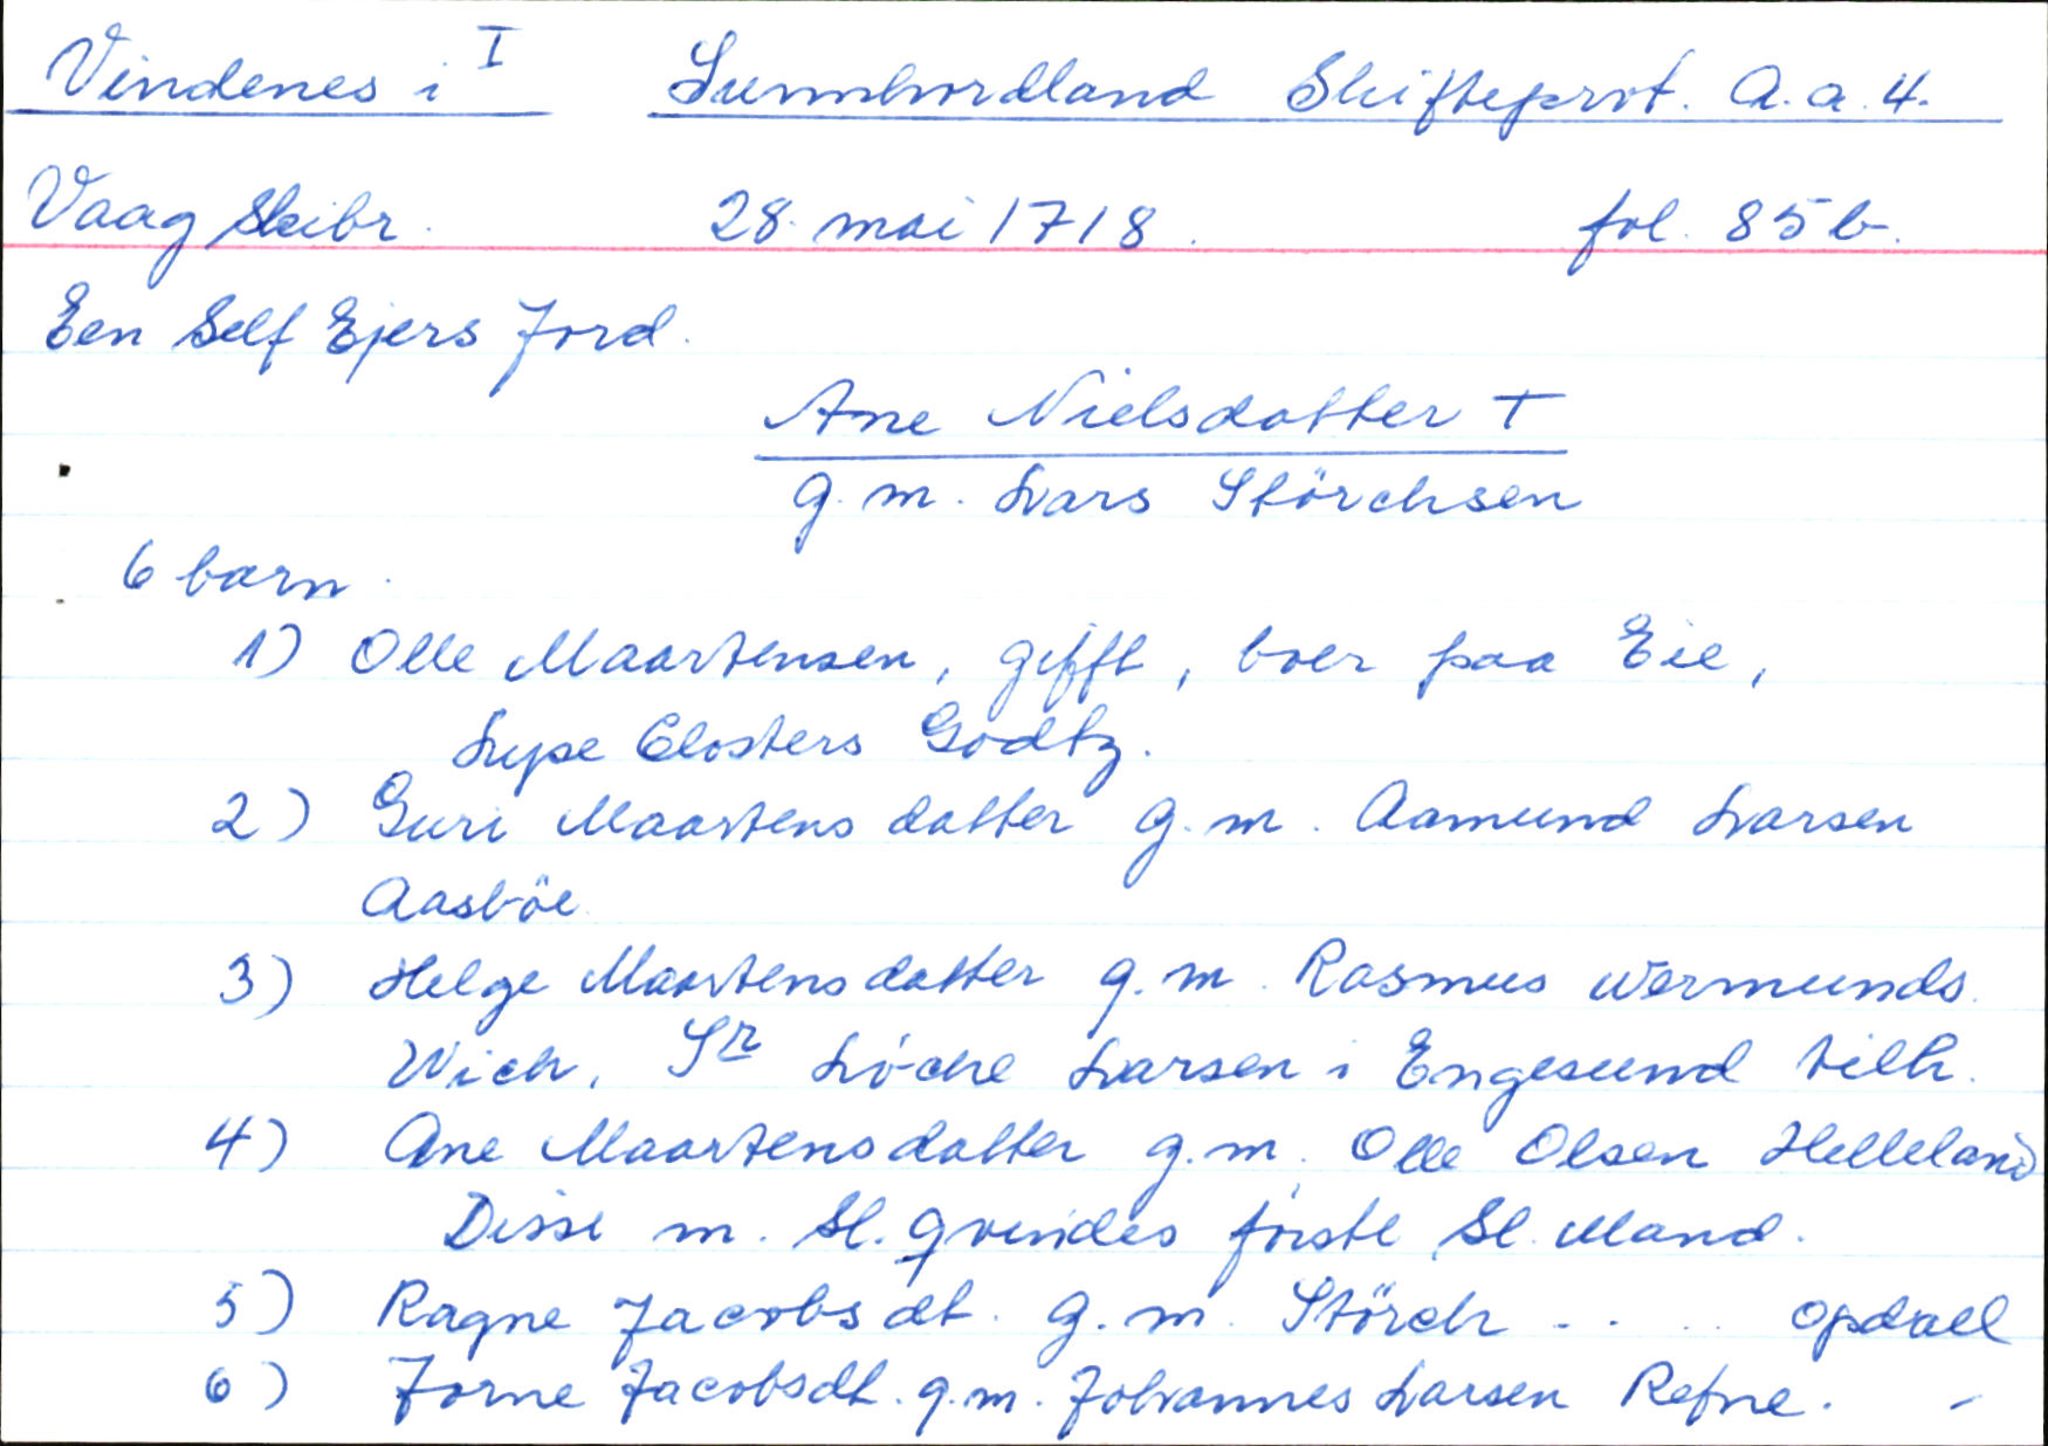 Vindenes i I Sunnhordland Skifteprot. A.a.4.
Vaag Skibr. 28. mai 1718. fol. 85b.
Een Self Ejers Jord.
Ane Nielsdatter †
g.m. Lars Störchsen
6 barn.
1) Olle Maartensen, gifft, boer paa Eie,
Lyse Closters Godtz.
2) Guri Maartensdatter g.m. Aamund Larsen
Aasböe
3) Helge Maartensdatter g.m. Rasmus Wermunds.
Wich. Sr Löche Larsen i Engesund tilh.
4) Ane Maartensdatter g.m. Olle Olsen Helleland
Disse m. Sl. Qvindes förste Sl. Mand.
5) Ragne Jacobsdt. g.m. Störch .. .. Opdall
6) Jorne Jacobsdt. g.m. Johannes Larsen Refne. -